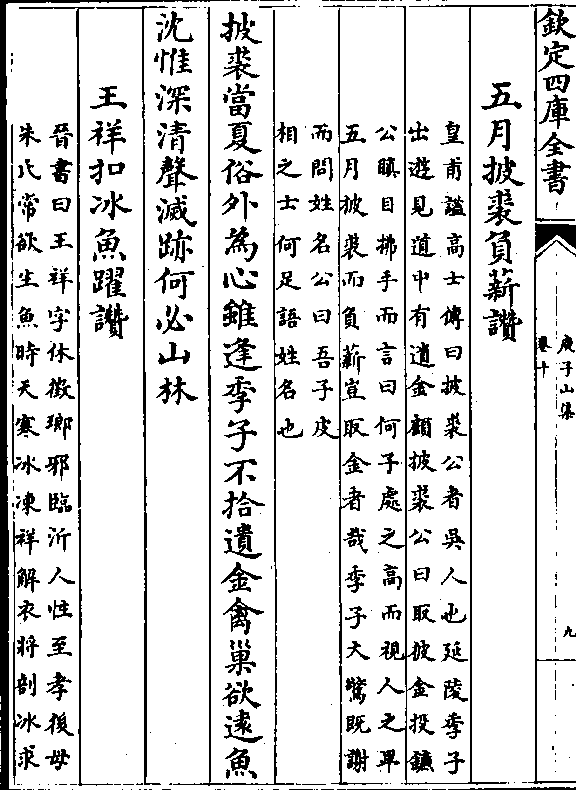 欽定四庫全書
庾子山集
卷十
九
五月披裘負薪讚
皇甫謐高士傳曰披裘公者吳人也延陵季子
出遊見道中有遺金顧披裘公曰取彼金投鐮
公瞋目拂手而言曰何子處之高而視人之卑
五月披裘而負薪豈取金者哉季子大驚既謝
而問姓名公曰吾子皮
相之士何足語姓名也
披裘當夏俗外為心雖逢季子不拾遺金禽巢欲遠魚
沈惟深清聲滅跡何必山林
王祥扣冰魚躍讚
晉書曰王祥字休徵瑯邪臨沂人性至孝後母
朱氏常欲生魚時天寒冰凍祥解衣將剖冰求